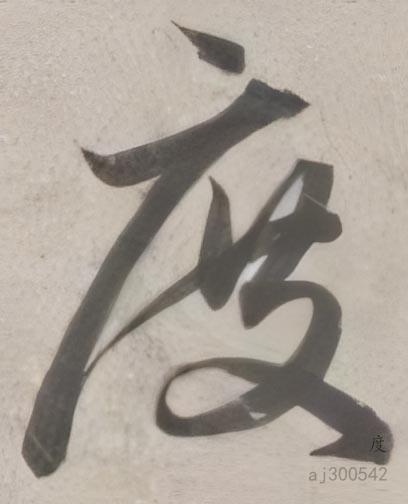 度
度
aj300542